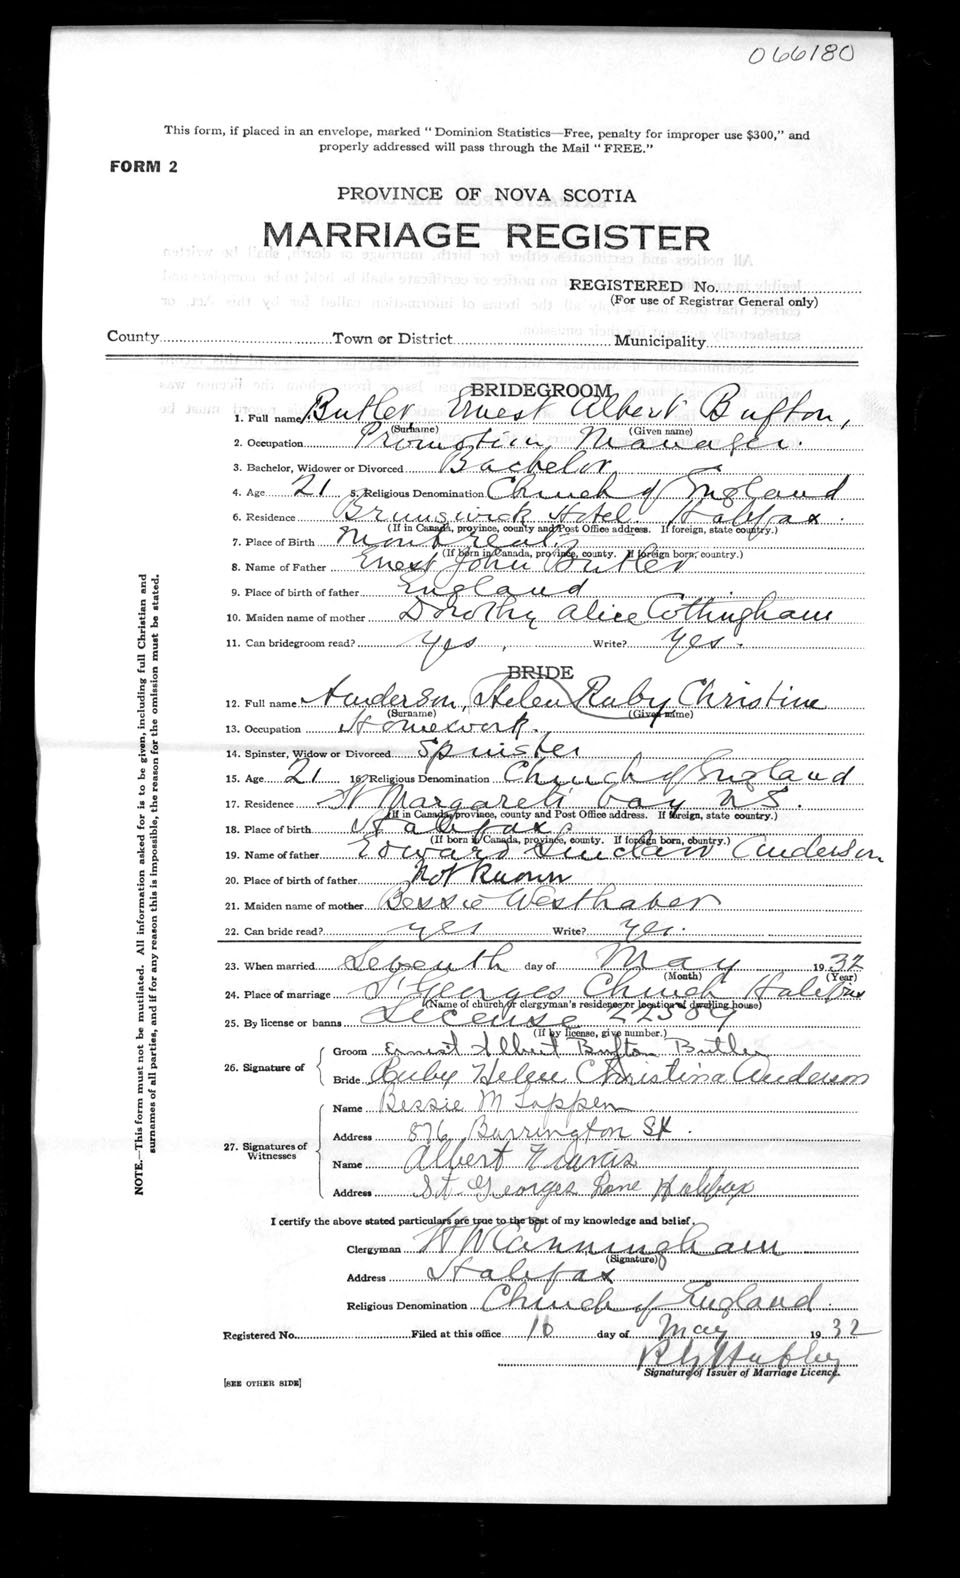 066180
This form, if placed in an envelope, marked "Dominion Statistics—Free, penalty for improper use $300," and
properly addressed will pass through the Mail "FREE."
FORM 2
PROVINCE OF NOVA SCOTIA
MARRIAGE REGISTER
REGISTERED No.
(For use of Registrar General only)
County Town or District Municipality
BRIDEGROOM
1. Full name Butler Ernest Albert Bufton,
(Surname) (Given name)
2. Occupation Promotion Manager.
3. Bachelor, Widower or Divorced Bachelor
4. Age 21 5. Religious Denomination Church of England
6. Residence Brunswick Hotel. Halifax.
(If in Canada, province, county and Post Office address. If foreign, state country.)
7. Place of Birth Montreal.
(If born in Canada, province, county. If foreign born, country.)
8. Name of Father Ernest John Butler
9. Place of birth of father England
10. Maiden name of mother Dorothy Alice Cottingham
11. Can bridegroom read? Yes, Write? Yes.
BRIDE
12. Full name Anderson, Helen Ruby Christine
(Surname) (Given name)
13. Occupation Homework.
14. Spinster, Widow or Divorced Spinster
15. Age 21 16. Religious Denomination Church of England
17. Residence St Margarets bay NS.
(If in Canada, province, county and Post Office address. If foreign, state country.)
18. Place of birth Halifax
(If born in Canada, province, county. If foreign born, country.)
19. Name of father Edward Sinclair Anderson
20. Place of birth of father Not Known
21. Maiden name of mother Bessie Westhaver
22. Can bride read? yes Write? yes.
23. When married Seventh day of May 1932
(Month) (Year)
24. Place of marriage St Georges Church Halifax
(Name of church or clergyman's residence or location of dwelling house)
25. By license or banns License 22389
(If by license, give number.)
26. Signature of
Groom Ernest Albert Bufton Butler
Bride Ruby Helen Christina Anderson
27. Signatures of Witnesses
Name Bessie M Tappen
Address 876 Barrington St.
Name Albert Travis
Address St. Georges Lane Halifax
I certify the above stated particulars are true to the best of my knowledge and belief.
Clergyman H W Cunningham
(Signature)
Address Halifax
Religious Denomination Church of England.
Registered No. Filed at this office 16 day of May 1932
Signature of Issuer of Marriage Licence.
[SEE OTHER SIDE]
NOTE.—This form must not be mutilated. All information asked for is to be given, including full Christian and
surnames of all parties, and if for any reason this is impossible, the reason for the omission must be stated.